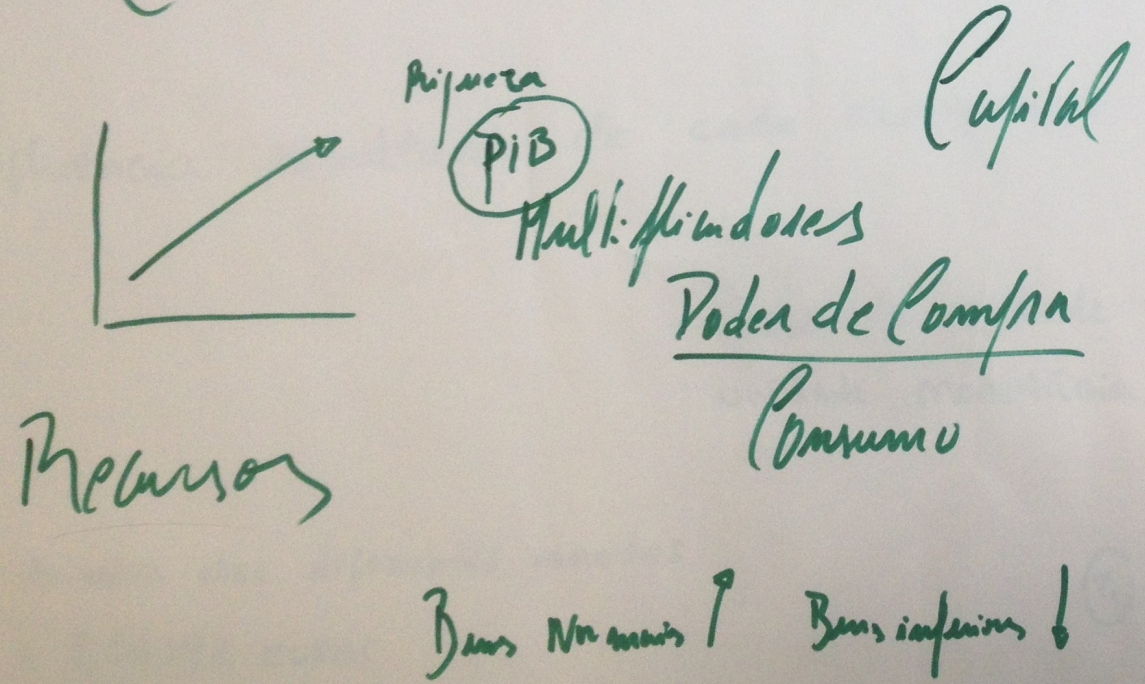 Capital
Riqueza
PIB
Multiplicadores
Poder de Compra
Consumo
Recursos
Bens Normais ↑ Bens inferiores ↓